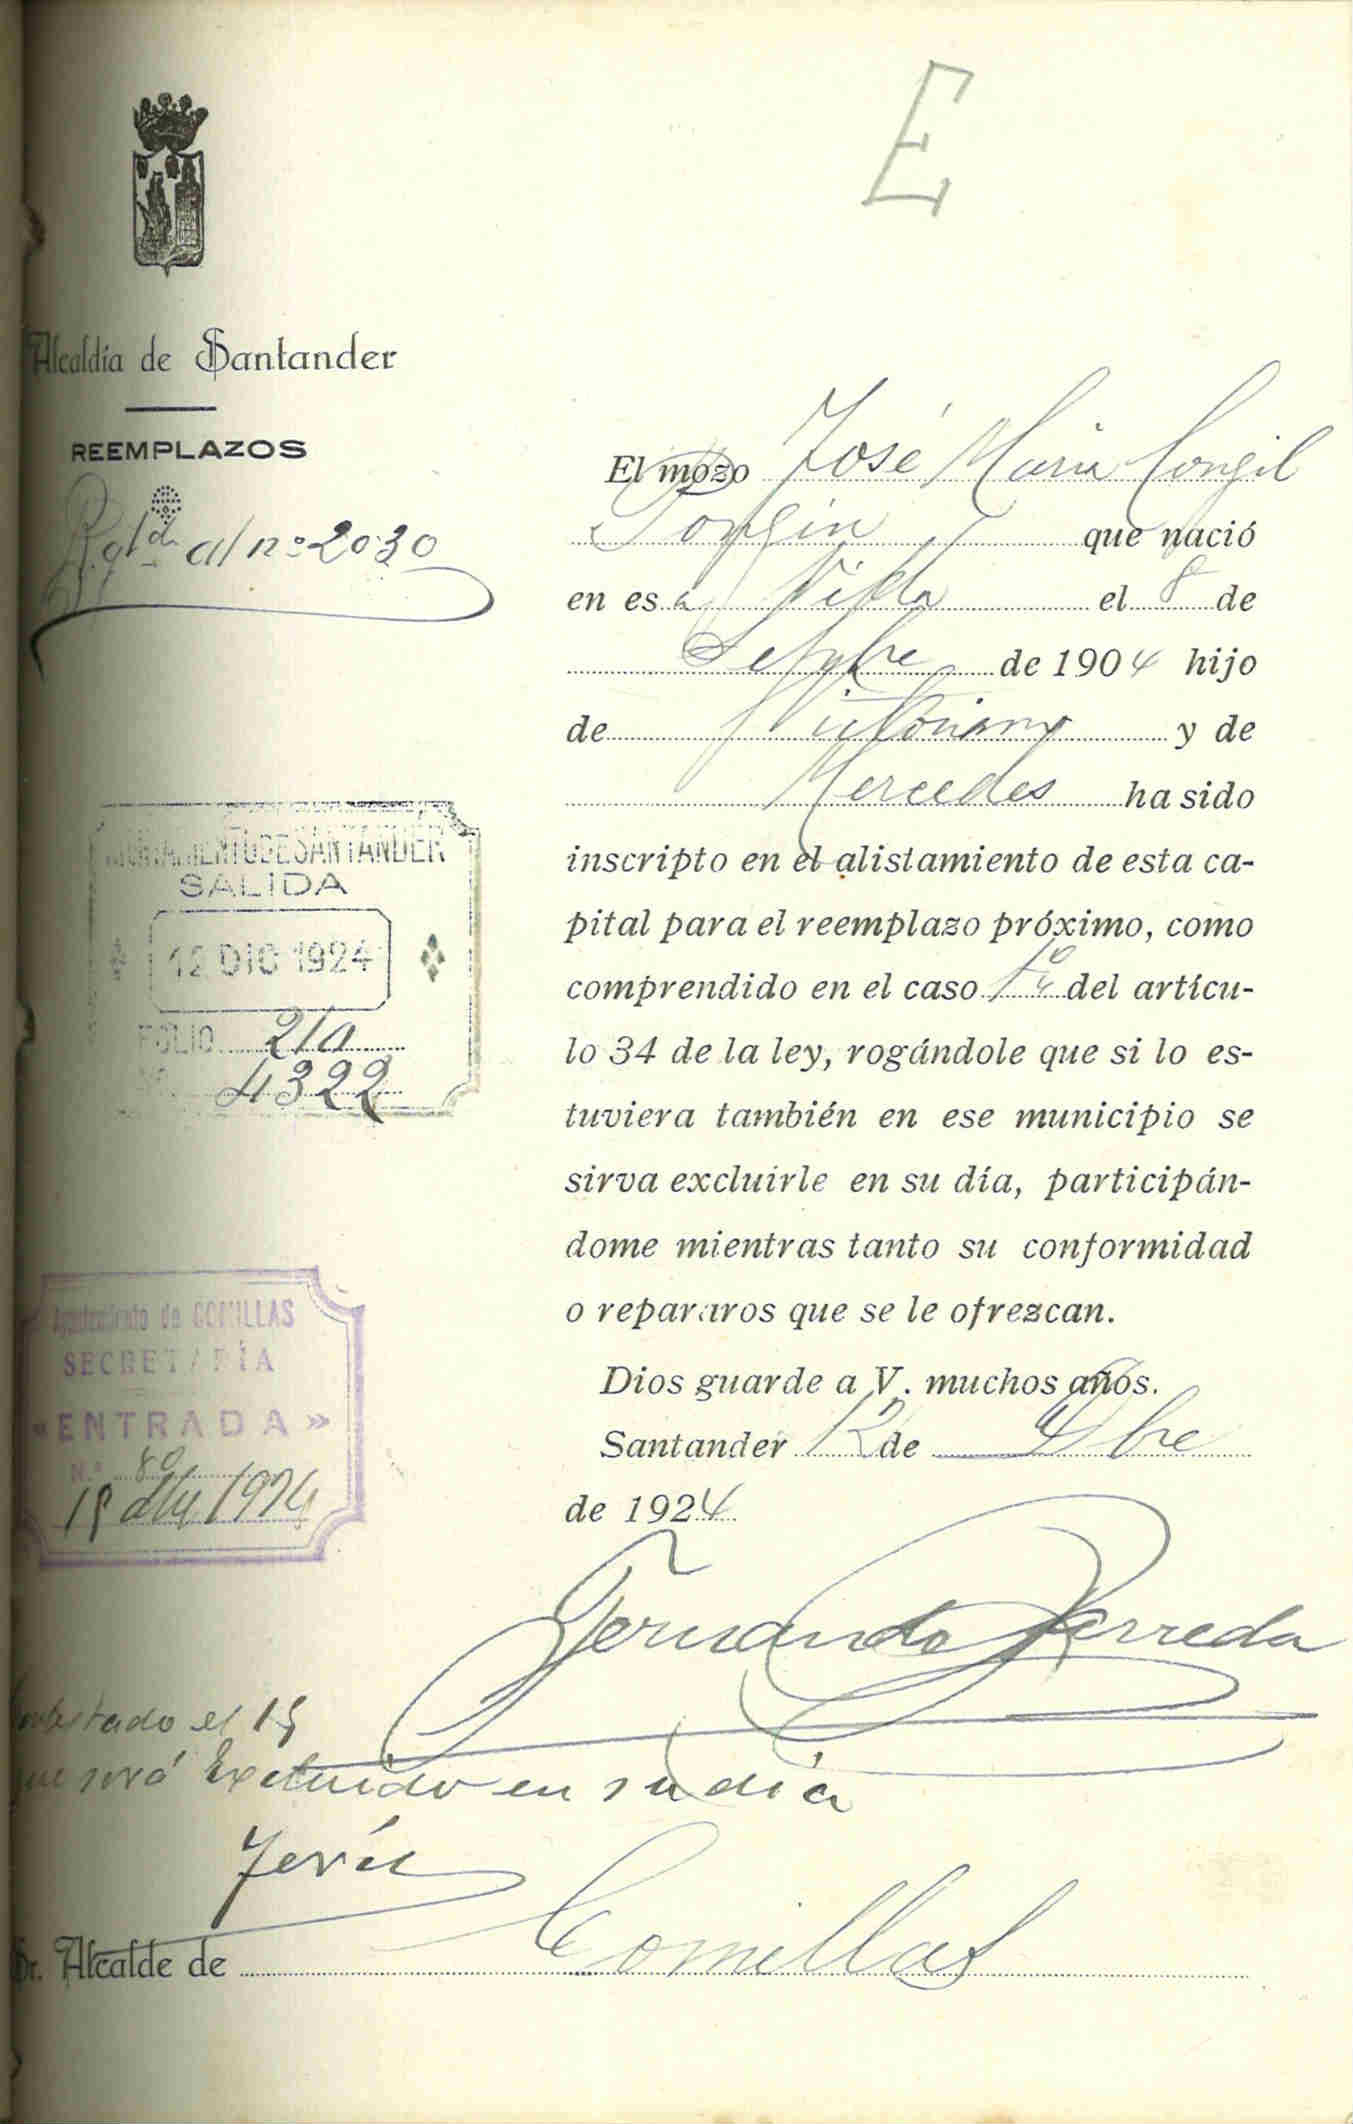 E
Alcaldía de Santander
REEMPLAZOS
al nº 2030
El mozo José María Congil
que nació
en esa Villa el 8 de
Setbre de 1904 hijo
de Victoriano y de
Mercedes ha sido
inscripto en el alistamiento de esta ca-
pital para el reemplazo próximo, como
comprendido en el caso del artícu-
lo 34 de la ley, rogándole que si lo es-
tuviera también en ese municipio se
sirva excluirle en su día, participán-
dome mientras tanto su conformidad
o repararos que se le ofrezcan.
Dios guarde a V. muchos años.
Santander 12 de Dbre
de 1924
AYUNTAMIENTO DE SANTANDER
SALIDA
12 DIC 1924
FOLIO 210
Nº 4322
Ayuntamiento de COMILLAS
SECRETARÍA
«ENTRADA»
N.º 80
1924
Fernando Barreda
Contestado el 15
que será Excluido en su día
Sr. Alcalde de Comillas